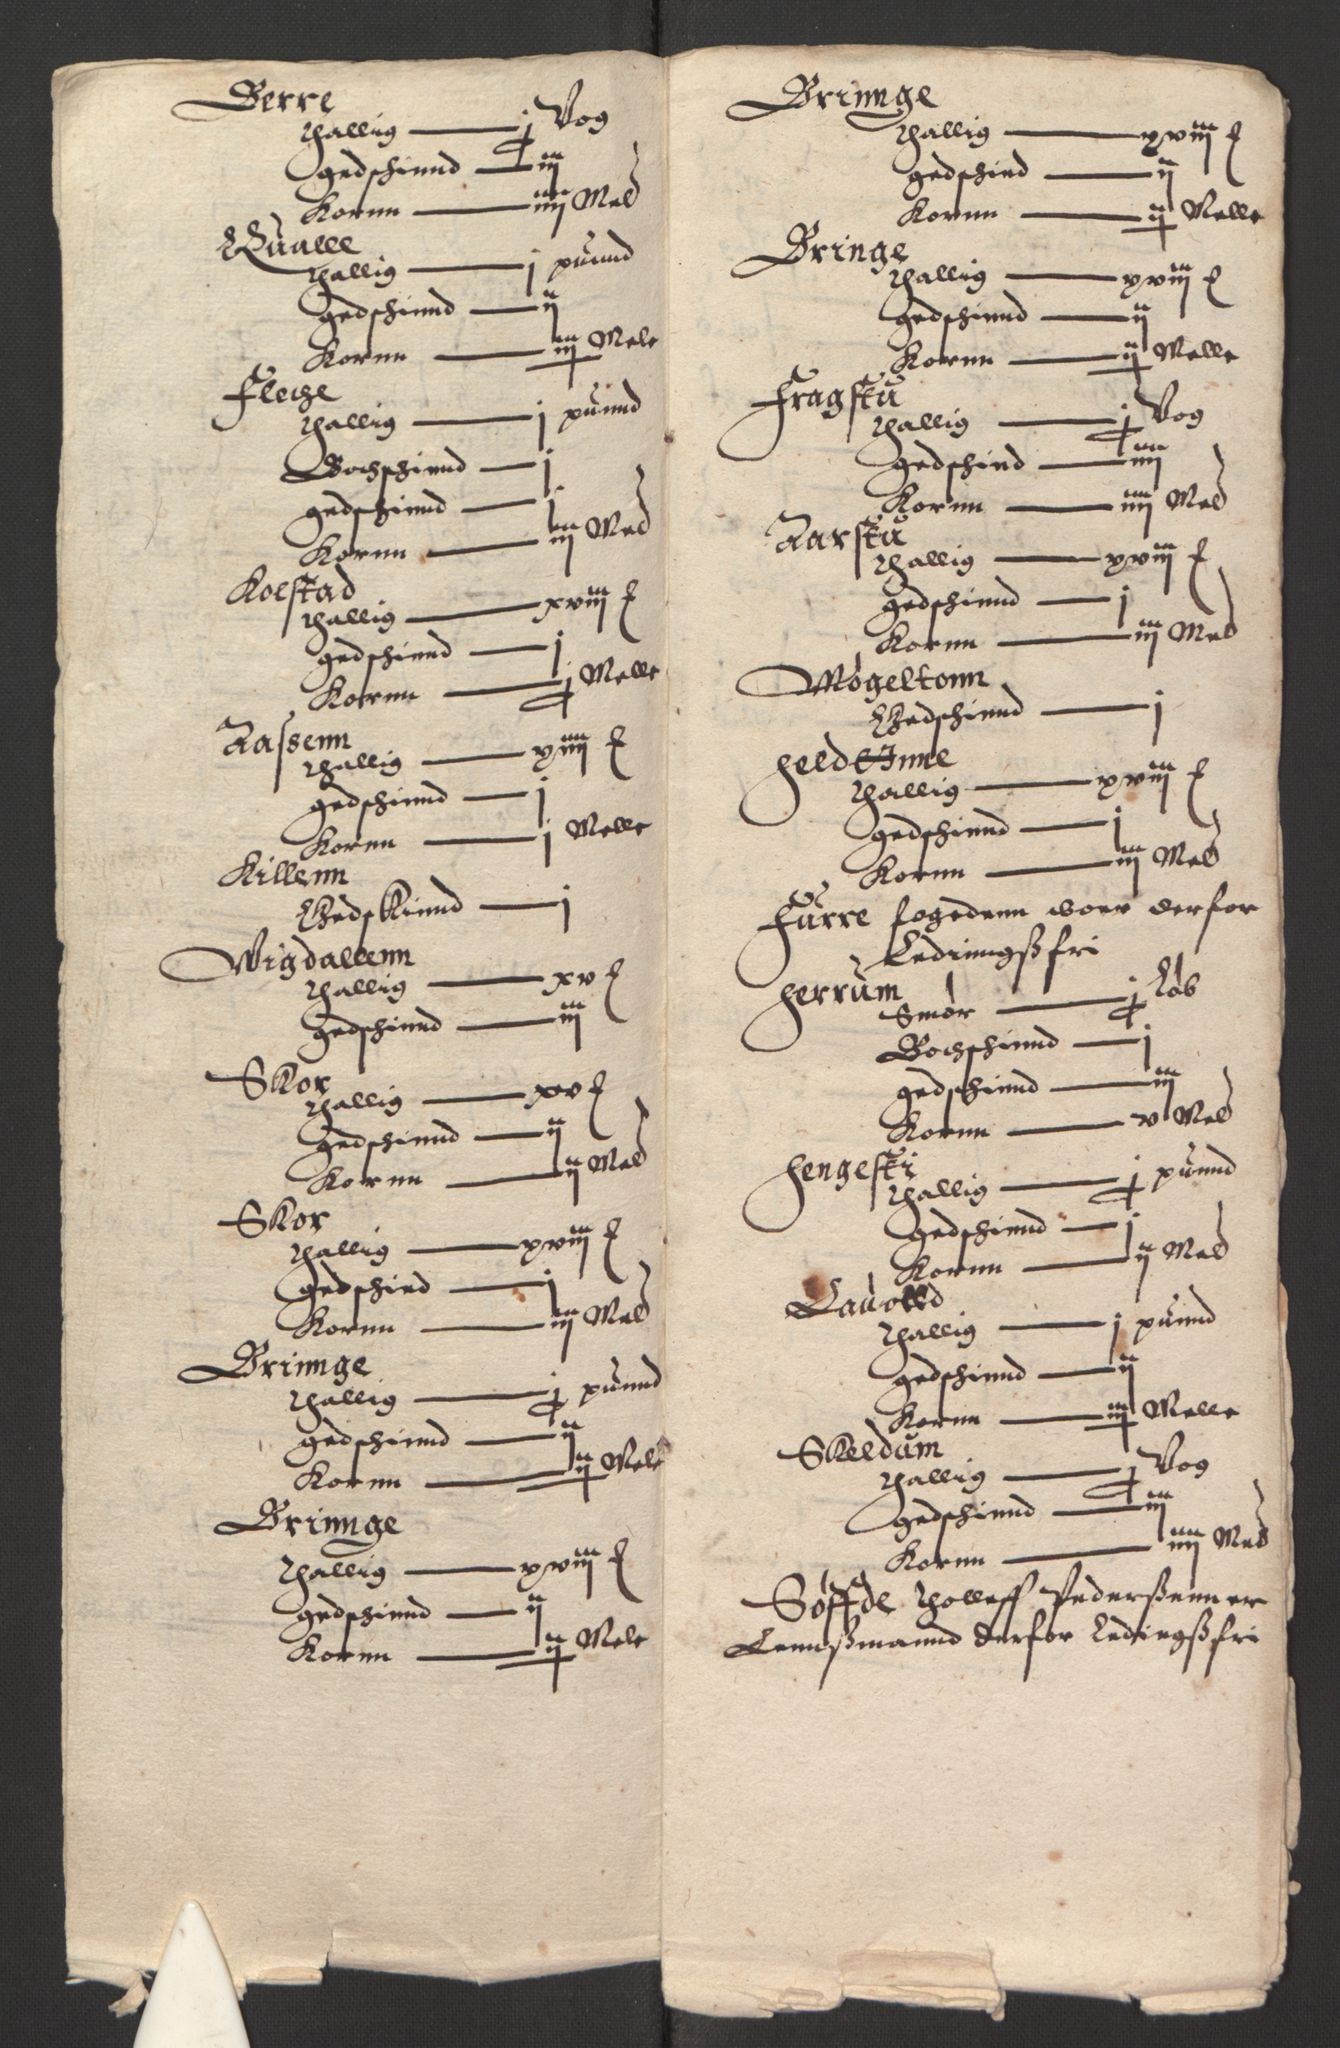 Berre
thallig — j Vog
gedschinnd — iij
Kornn — iiij Meld
Qualle
thallig — j puund
gedschinnd — ij
Kornn — iij Mele
Fleche
thallig — j puund
Bochschinnd — j
gedschinnd — j
Kornn — iij Meld
Kolstad
thallig — xviij
gedschinnd — j
Kornn — j Melle
Aassenn
thallig — xiiij
gedschinnd — j
Kornn — j Melle
Killenn
Gedskinnd — j
Wigdallenn
thallig — xv
gedschinnd — iij
Skor
thallig — xv
gedschinnd — ij
Kornn — ij Meld
Skor
thallig — xviij
gedschind — j
Kornn — iij Meld
Brinnge
thallig — j puund
gedschinnd — ij
Kornn — ij Mele
Brinnge
thallig — xviij
gedschinnd — ij
Kornn — ij Mele
Brinnge
thallig — xviij
gedschind — ij
Kornn — ij Melle
Bringe
thallig — xviij
gedschinnd — ij
Kornn — ij Melle
Fragstu
thallig — j Vog
gedschind — iiij
Kornn — iiij Meld
Aarstu
thallig — xviij
gedschinnd — j
Kornn — iij Meld
Mögeltonn
Gedschinnd — j
held
thallig — xviij
gedschinnd — j
Kornn — iij Meld
Fúrre fogedenn woer derfor
Ledinngsfri
herrúm
Smör — j Löb
Bochschinnd — j
gedschinnd — iij
Kornn — v Meld
hengesti
thallig — j puund
gedschinnd — j
Kornn — ij Meld
thallig — j puund
gedschinnd — ij
Kornn — iij Melle
Skeldúm
thallig — j Vog
gedschinnd — iij
Kornn — iiij Meld
Söffde tholleff Pederssenn er
Lennssmannd derfor Ledingsfri